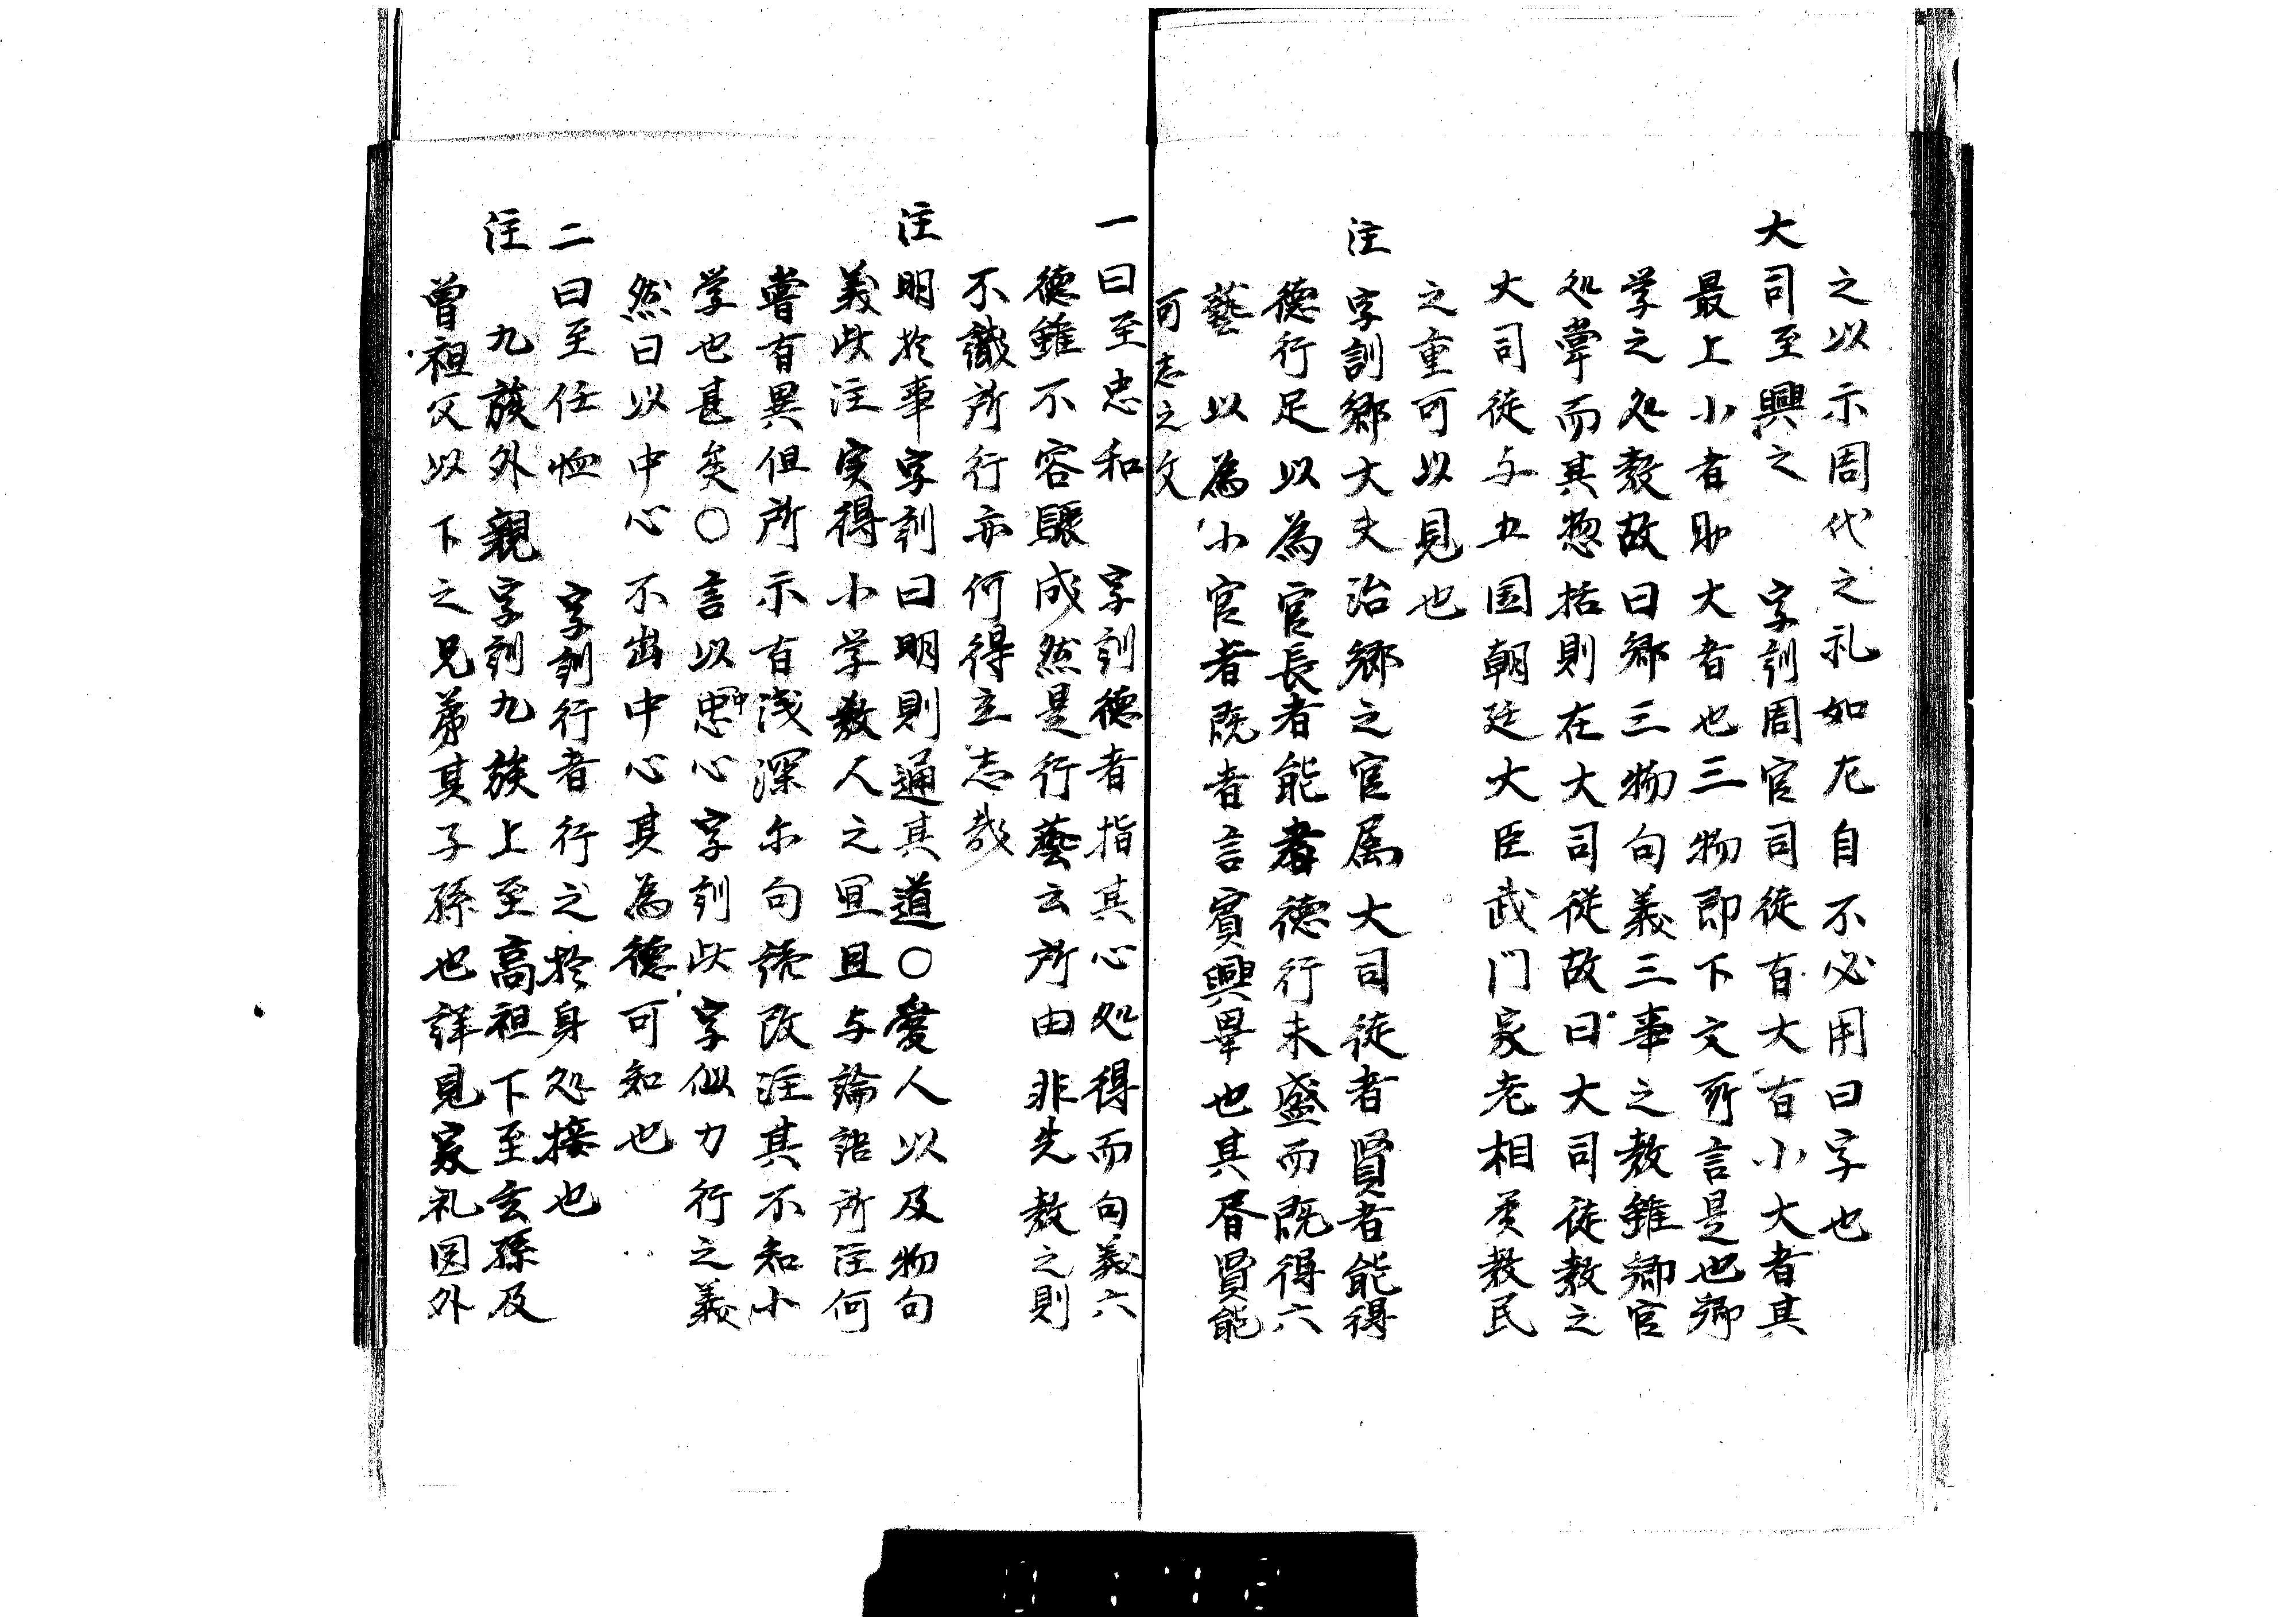 之以示周代之礼如左自不必用曰字也
大司至興之　字訓周官司徒有大有小大者其
最上小者助大者也三物即下文所言是也郷
学之処教故曰郷三物句義三事之教雖郷官
処掌而其惣括則在大司従故曰大司徒教之
大司徒与五国朝廷大臣武门家老相
教民
之重可以見也
注　字訓郷大夫治郷之官属大司徒者賢者能得
德行足以為官長者能者德行未盛而既得六
藝以為小官者既者言賓興舉也其
賢能
可志之攵
一曰至忠和　字訓德者指其心処得而句義六
德雖不容驟成然是行藝云所由非先教之則
不識所行亦何得立志哉
注明於事字訓曰明則通其道〇愛人以及物句
義此注实得小学教人之宜且与論語所注何
嘗有異但所示有浅深尓句
改注其不知小
学也甚矣〇言以中思心字訓此字似力行之義
然曰以中心不出中心其為德可知也
二曰至任恤　字訓行者行之於身処接也
注　九族外親字訓九族上至高祖下至玄孫及
曾祖父以下之兄弟其子孫也詳見家礼図外